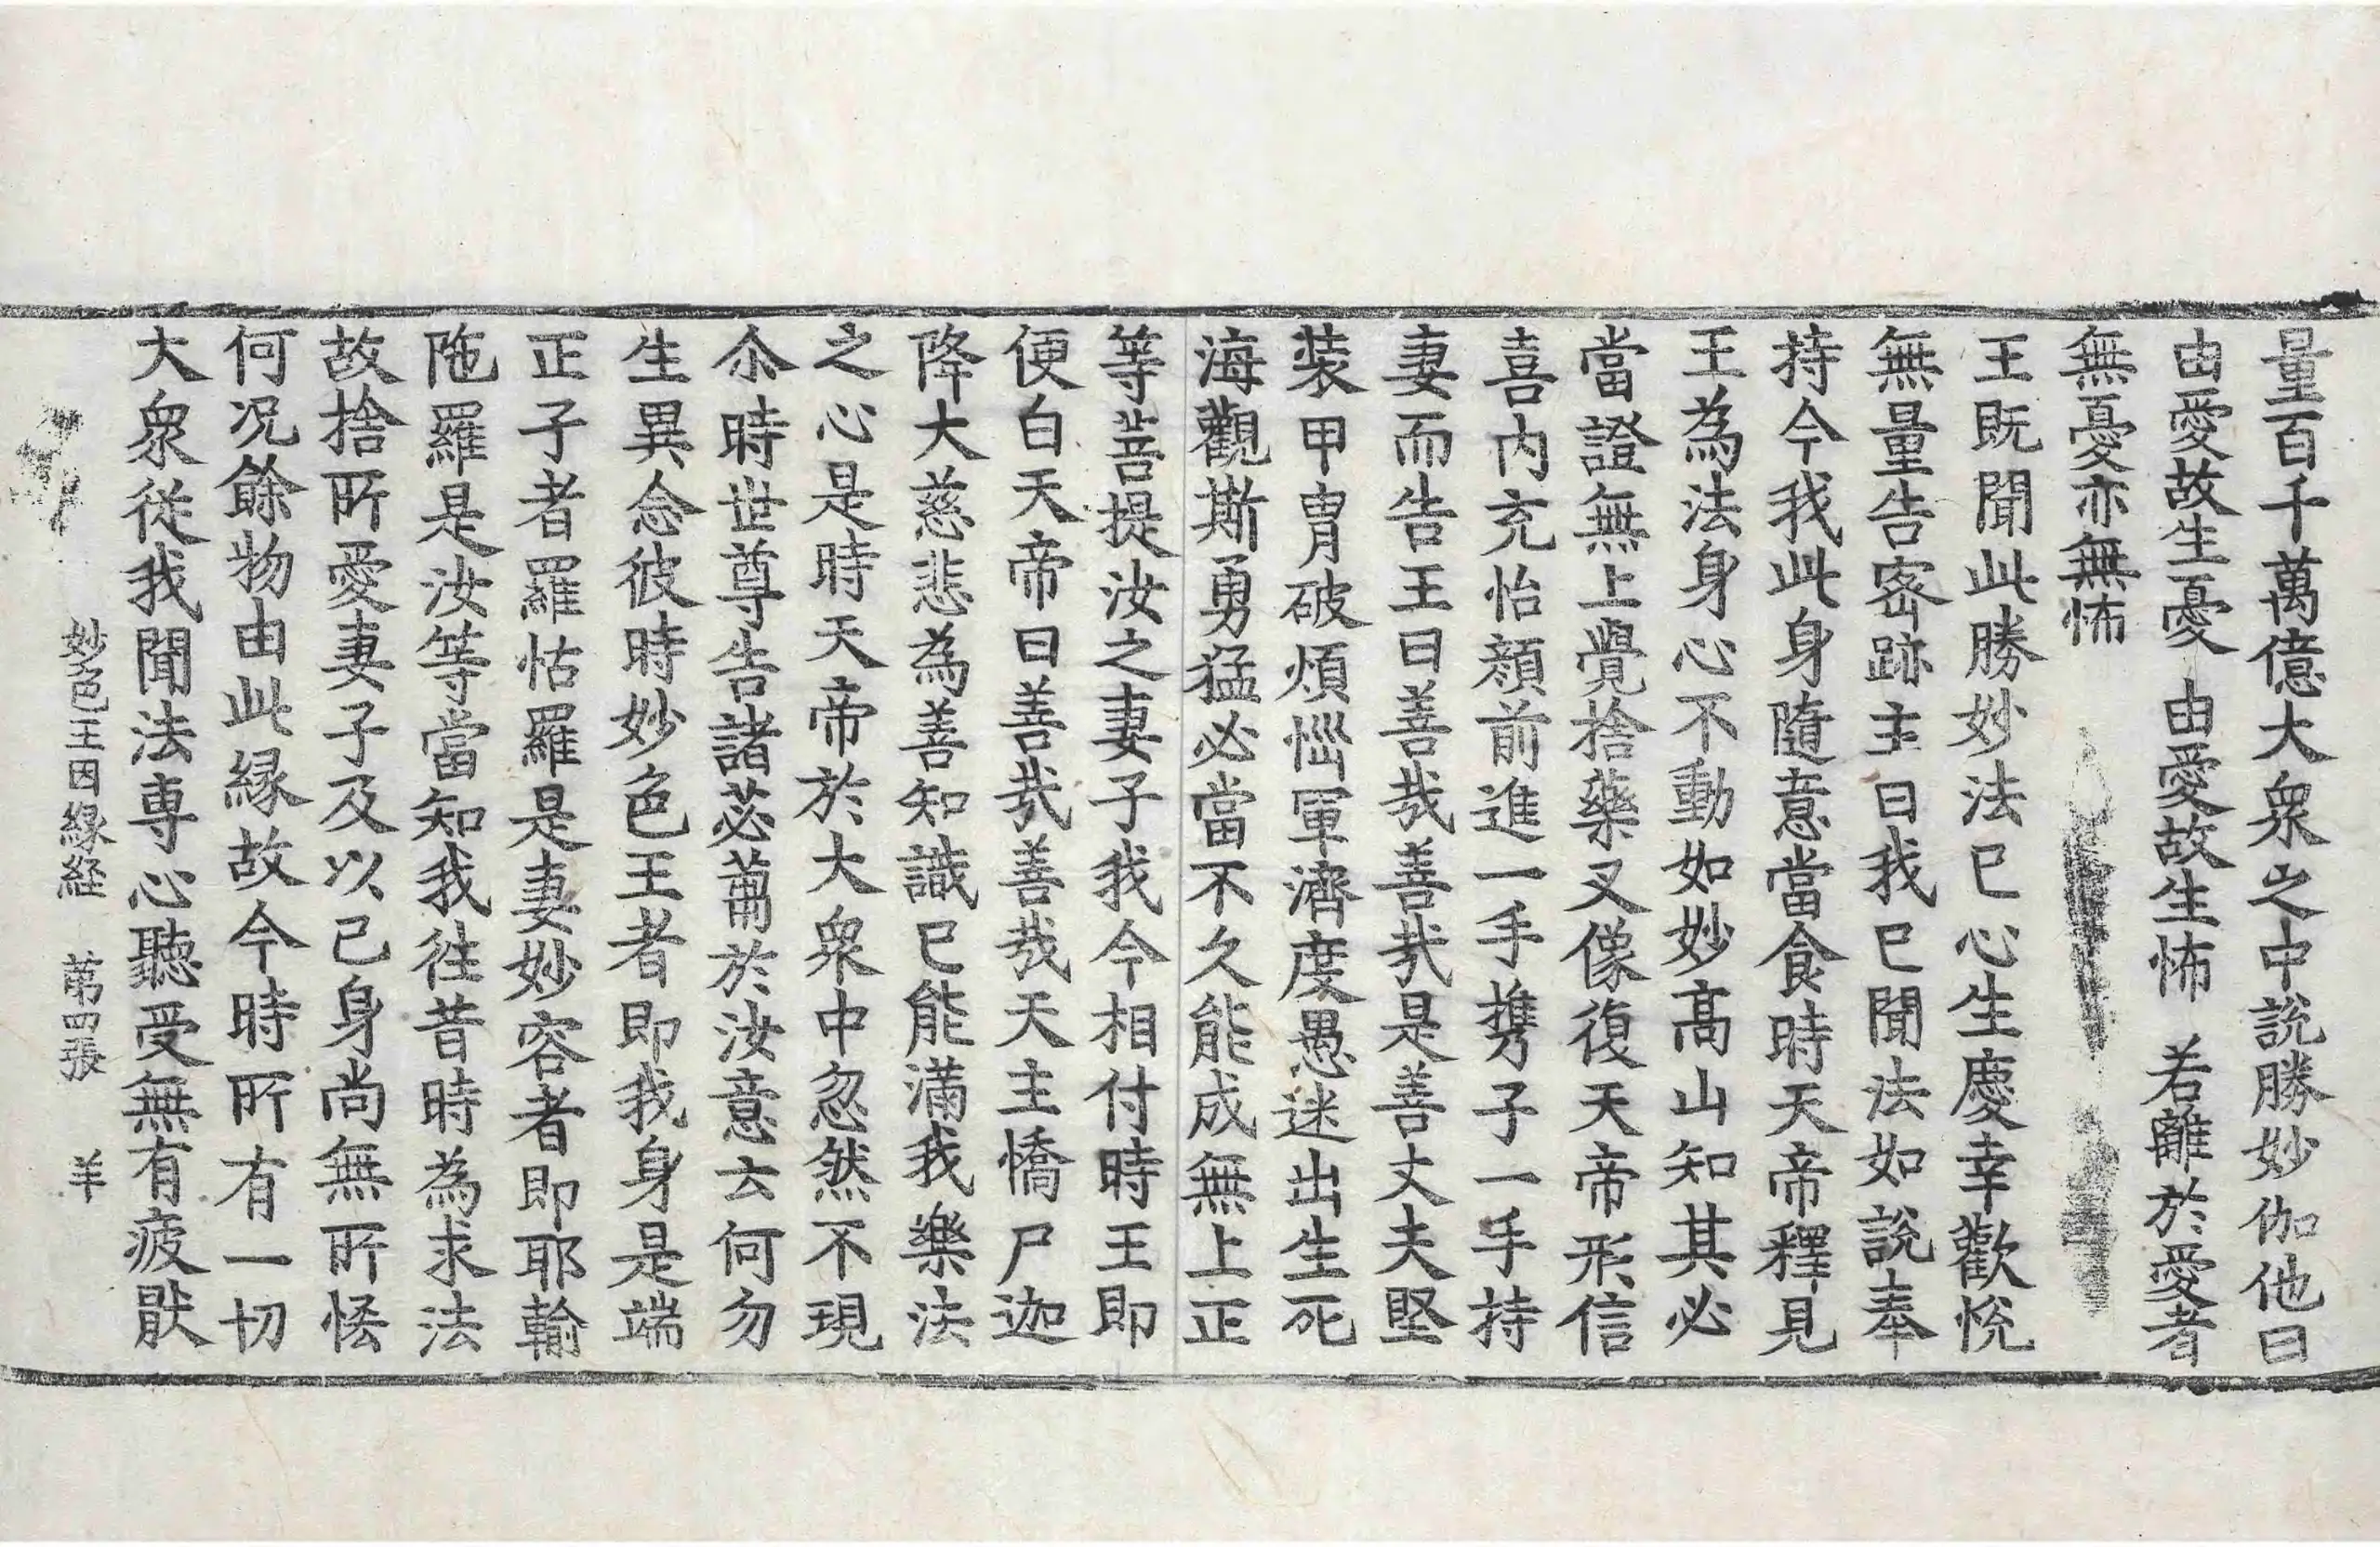 量百千萬億大衆之中說勝妙伽他曰
由愛故生憂 由愛故生怖 若離於愛者
無憂亦無怖
王既聞此勝妙法已心生慶幸歡悅
無量告密跡主曰我已聞法如說奉
持今我此身隨意當食時天帝釋見
王為法身心不動如妙高山知其必
當證無上覺捨藥叉像復天帝形信
喜內充怡顔前進一手携子一手持
妻而告王曰善哉善哉是善丈夫堅
装甲胄破煩惱軍濟度愚迷出生死
海觀斯勇猛必當不久能成無上正
等菩提汝之妻子我今相付時王即
便白天帝曰善哉善哉天主憍尸迦
降大慈悲為善知識已能滿我樂法
之心是時天帝於大衆中忽然不現
尒時世尊告諸苾蒭於汝意云何勿
生異念彼時妙色王者即我身是端
正子者羅怙羅是妻妙容者即耶輸
陁羅是汝等當知我往昔時為求法
故捨所愛妻子及以己身尚無所悋
何况餘物由此縁故今時所有一切
大衆從我聞法専心聽受無有疲猒
妙色王因緣経 苐四張 羊